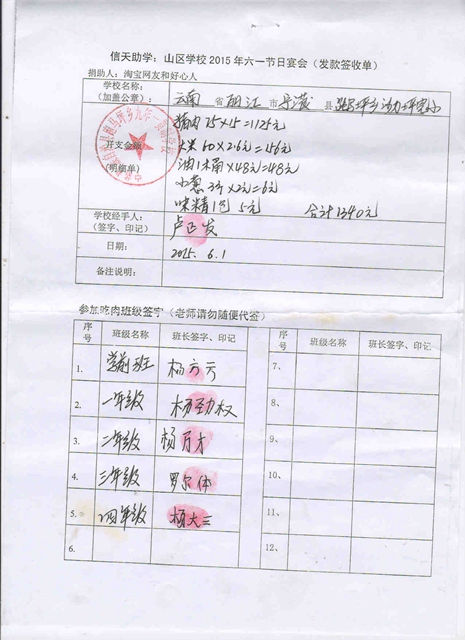 信天助学：山区学校2015年六一节日宴会（发款签收单）
捐助人：淘宝网友和好心人
学校名称：
（加盖公章）：
云南 省 丽江 市 宁蒗 县 跑马坪乡
开支金额
（明细单）
猪肉 75×15=1125元
大米 60×2.6元=156元
油1桶×48元=48元
小葱 3斤×2元=6元
味精1包 5元 合计1340元
学校经手人：
（签字、印记）
卢正发
日期：
2015.6.1
备注说明：
参加吃肉班级签字（老师请勿随便代签）
序号 班级名称 班长签字、印记 序号 班级名称 班长签字、印记
1. 学前班 杨方云 7、
2. 一年级 杨劲权 8、
3. 二年级 杨万才 9、
4. 三年级 罗尔体 10、
5. 四年级 杨大三 11、
6. 12、